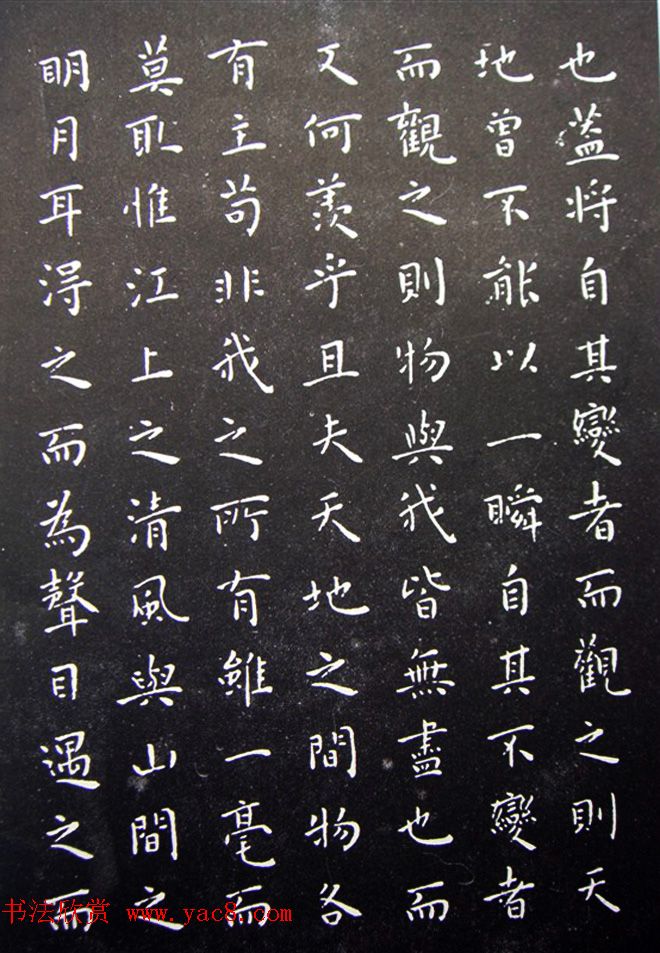 也蓋将自其變者而觀之則天
地曾不能以一瞬自其不變者
而觀之則物與我皆無盡也而
又何羨乎且夫天地之間物各
有主苟非我之所有雖一毫而
莫取惟江上之清風與山間之
明月耳得之而為聲目遇之而
书法欣赏 www.yac8.com